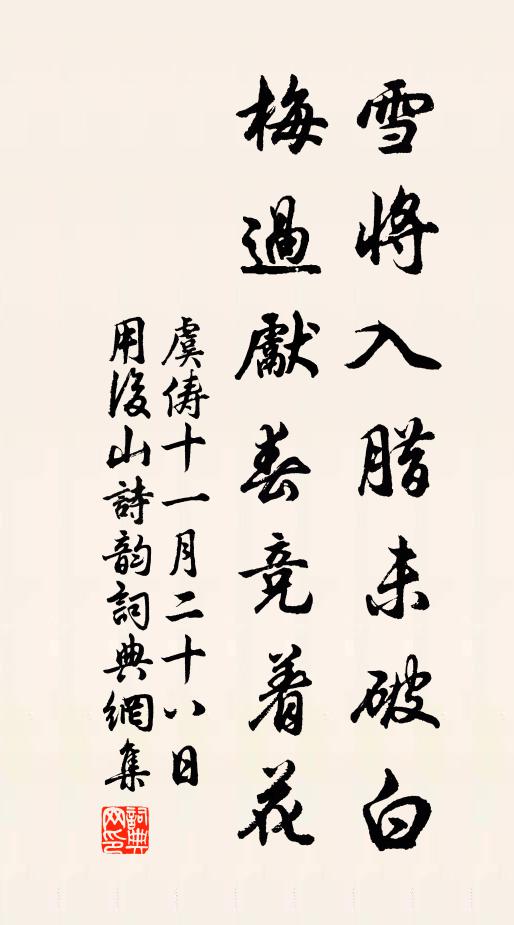 雪將入腊未破白
梅過獻春竞着花
虞俦十一月二十八日
用後山詩韵詞典網集
詞典网印